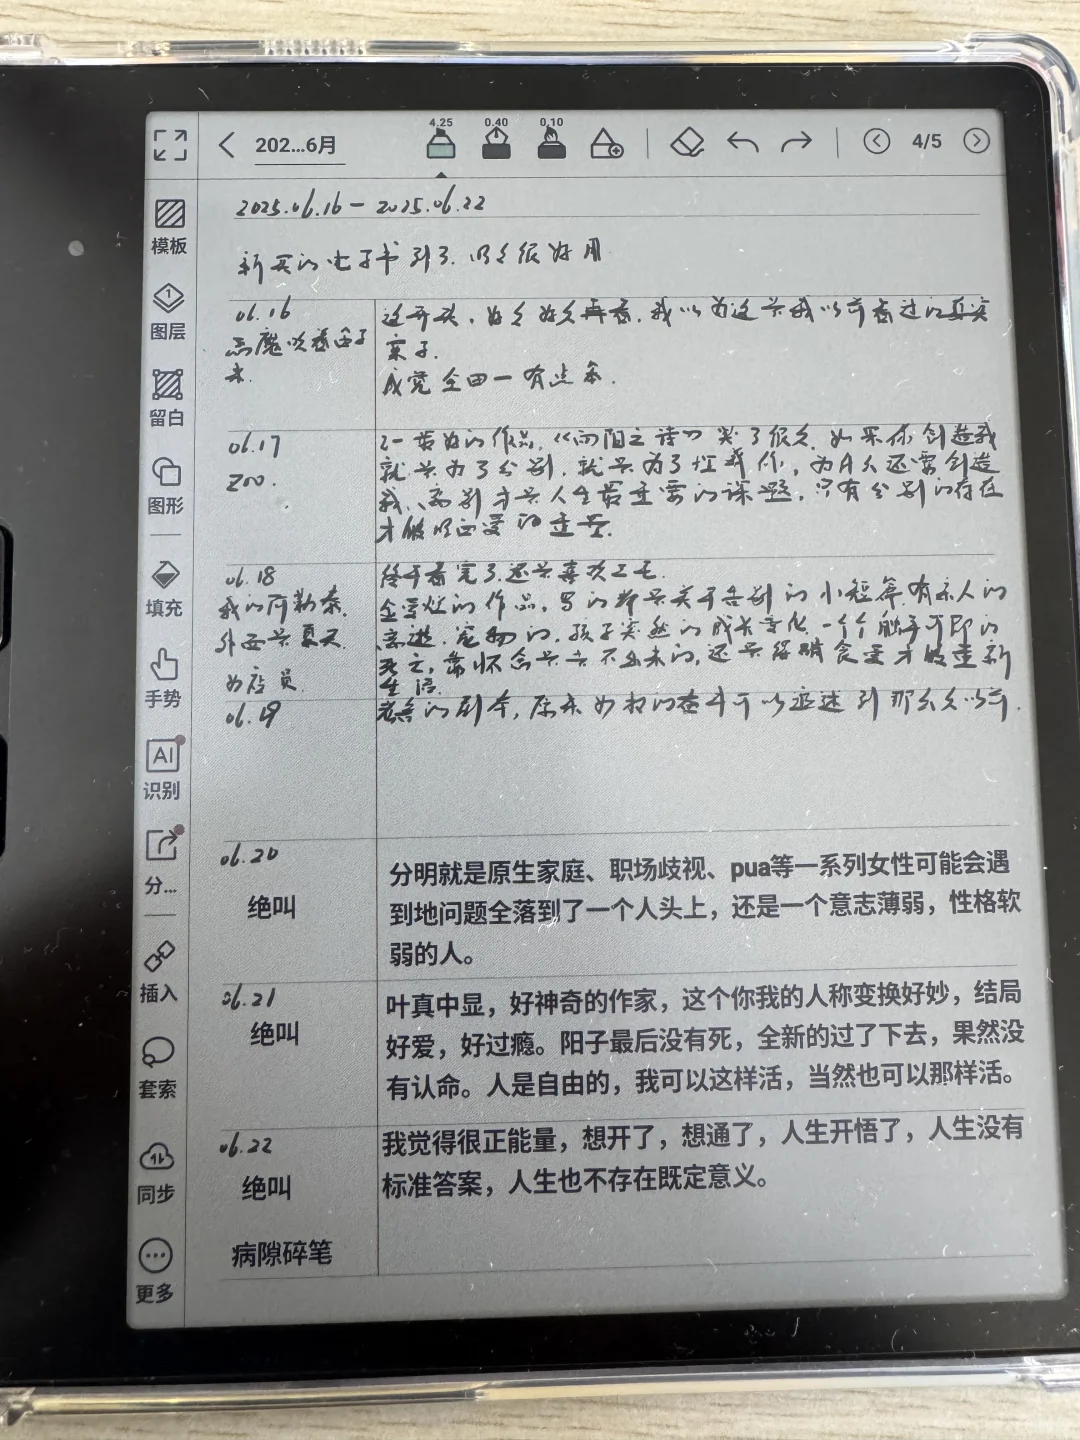 4.25 0.40 0.10
202...6月
4/5
模板
图层
留白
图形
填充
手势
AI
识别
分...
插入
套索
同步
更多
2025.06.16 - 2025.06.22
新买的电子书到了.
很好用
06.16
恶魔吹着笛子
来.
这开头,好久好久再看,我以为这是我以前看过的真实
案子.
感觉全田一有点笨.
06.17
ZOO.
乙一最好的作品,《向阳之诗》哭了很久.如果你创造我
就是为了分别,就是为了埋葬你,为什么还要创造
我、离别才是人生最重要的课题,只有分别的存在
才能明白爱的重量.
06.18
我的阿勒泰.
外面是夏天
为店员.
终于看完了.还是喜欢乙一.
的作品,写的都是关于告别的小短篇.有亲人的
离世.宠物的,孩子突然的成长变化.一个个触手可即的
死亡,靠怀念是
不出来的,还是
才能重新
生活.
06.19
的剧本,原来
的
可以追述到那么久以前.
06.20
绝叫
分明就是原生家庭、职场歧视、pua等一系列女性可能会遇
到地问题全落到了一个人头上，还是一个意志薄弱，性格软
弱的人。
06.21
绝叫
叶真中显，好神奇的作家，这个你我的人称变换好妙，结局
好爱，好过瘾。阳子最后没有死，全新的过了下去，果然没
有认命。人是自由的，我可以这样活，当然也可以那样活。
06.22
绝叫
病隙碎笔
我觉得很正能量，想开了，想通了，人生开悟了，人生没有
标准答案，人生也不存在既定意义。